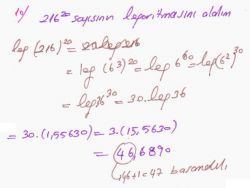 10/ 216²⁰ sayısının logaritmasını alalım
log (216)²⁰ = 20log216
= log (6³)²⁰ = log 6⁶⁰ = log(6²)³⁰
= log36³⁰ = 30.log36
= 30.(1,55630) = 3.(15,5630)
= 46,6890
46+1=47 basamaklı